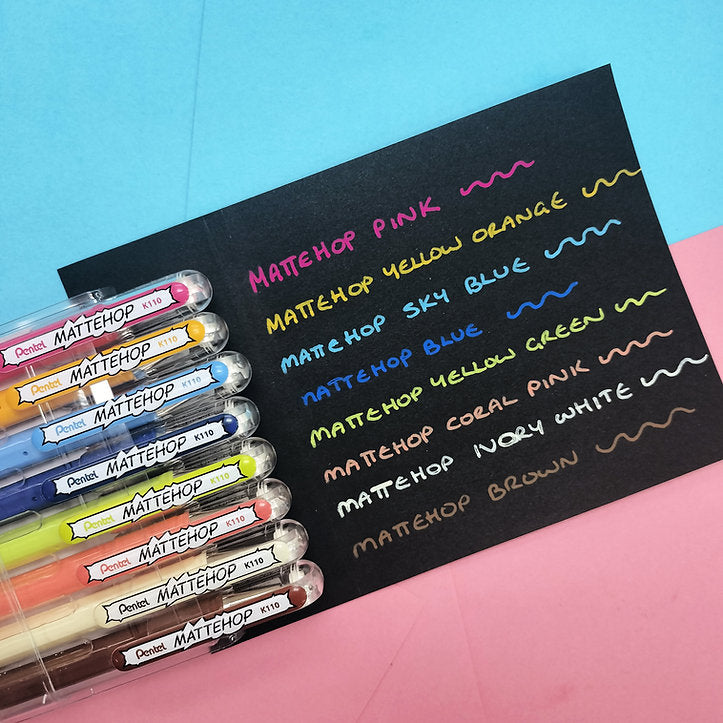 MATTEHOP PINK
MATTEHOP YELLOW ORANGE
MATTEHOP SKY BLUE
MATTEHOP BLUE
MATTEHOP YELLOW GREEN
MATTEHOP CORAL PINK
MATTEHOP IVORY WHITE
MATTEHOP BROWN
Pentel MATTEHOP K110
Pentel MATTEHOP K110
Pentel MATTEHOP K110
Pentel MATTEHOP K110
Pentel MATTEHOP K110
Pentel MATTEHOP K110
Pentel MATTEHOP K110
Pentel MATTEHOP K110